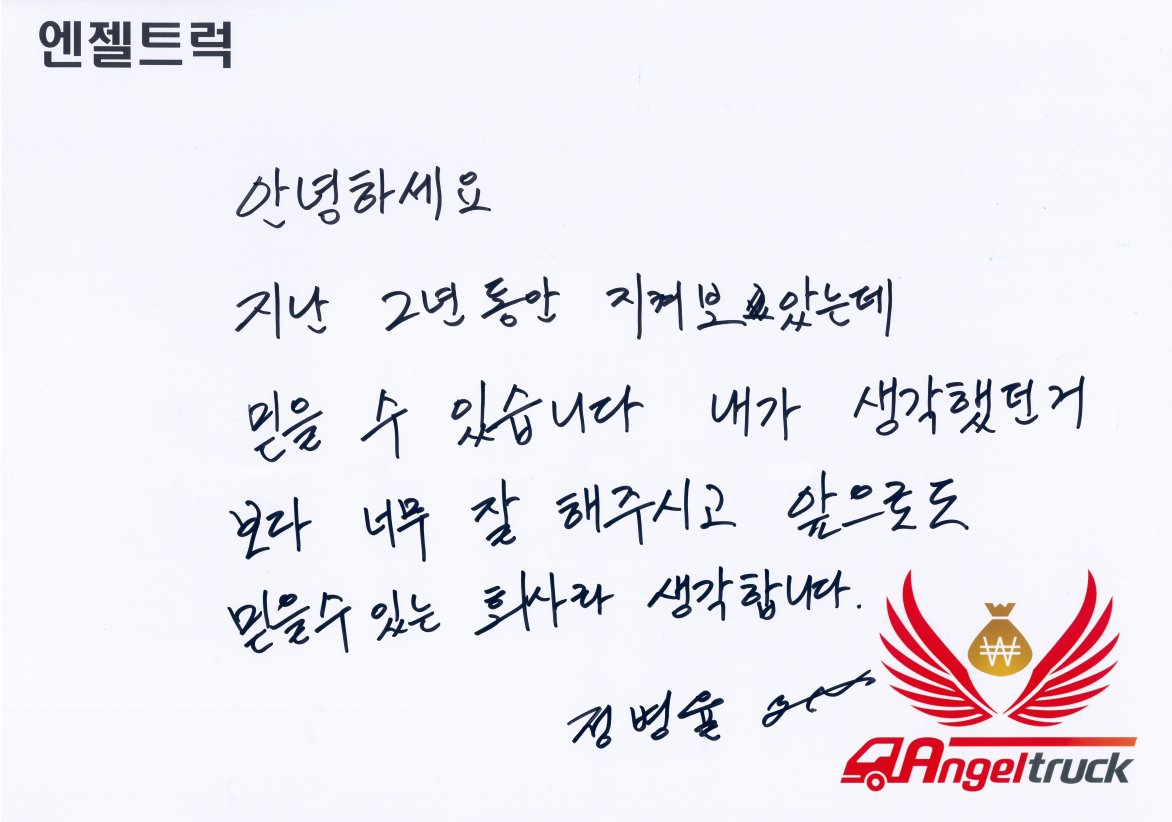 엔젤트럭
안녕하세요
지난 2년 동안 지켜보았는데
믿을 수 있습니다 내가 생각했던거
보다 너무 잘 해주시고 앞으로도
믿을수 있는 회사라 생각합니다.
정병율
₩
Angeltruck